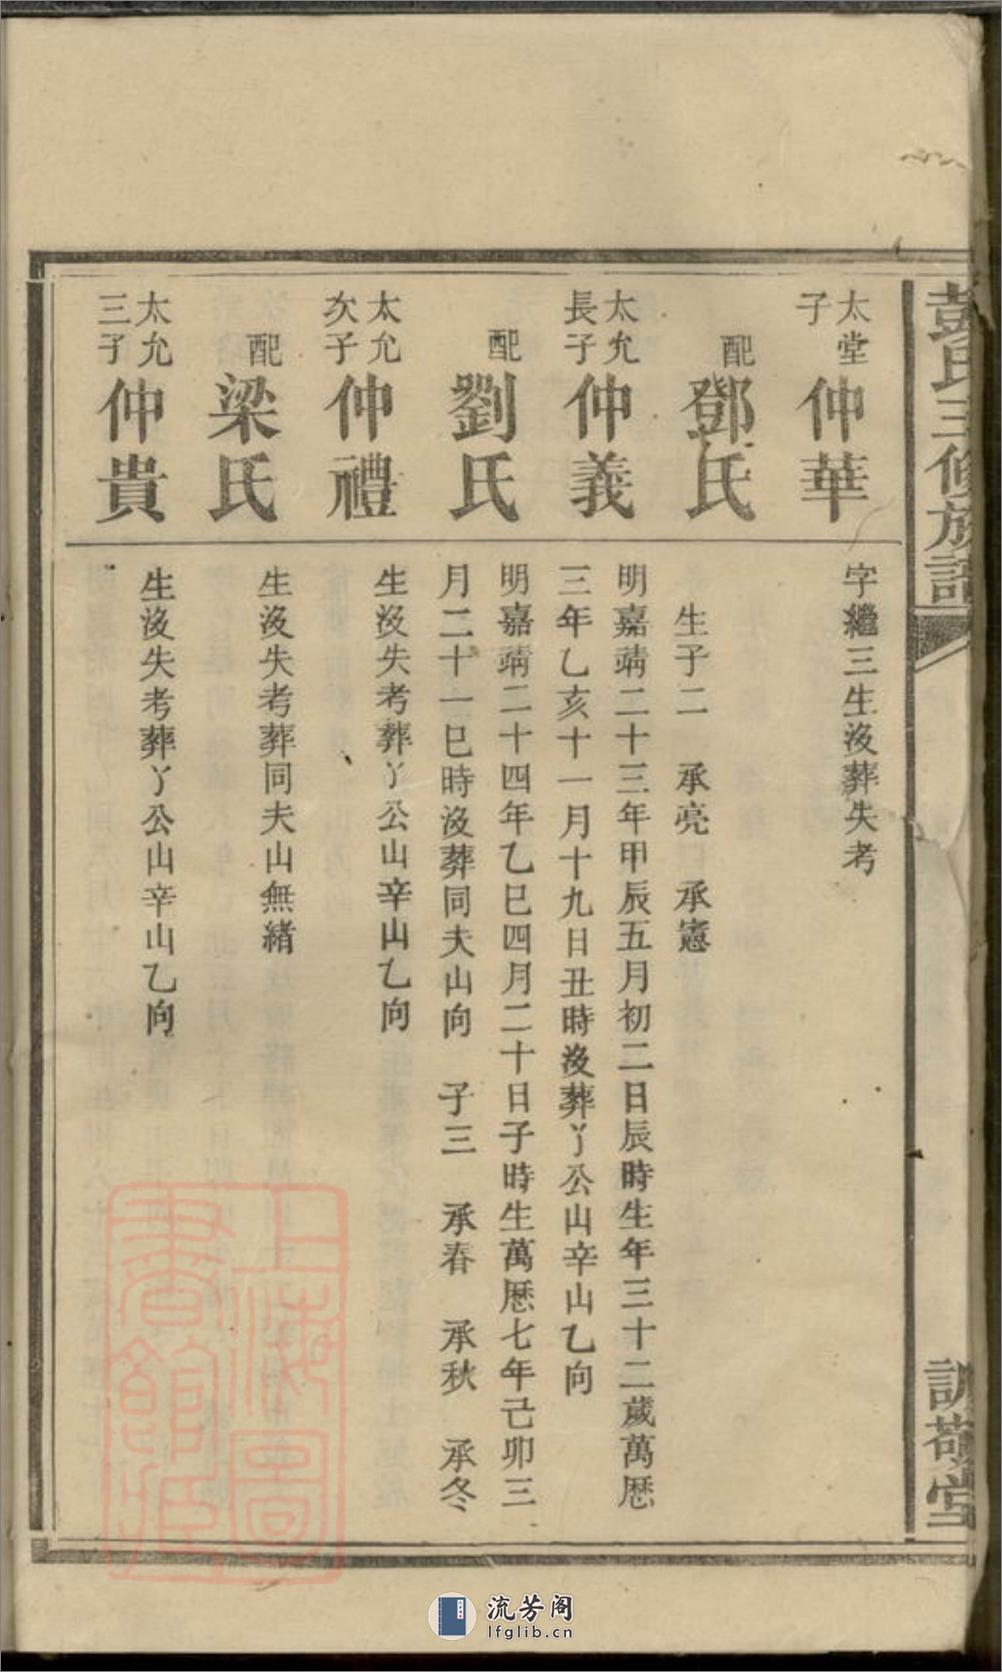 彭氏三修族譜
訓敬堂
太堂
子
仲華
字繼三生沒葬失考
配
鄧氏
生子二 承亮 承憲
太允
長子
仲義
明嘉靖二十三年甲辰五月初二日辰時生年三十二歲萬厯
三年乙亥十一月十九日丑時沒葬丫公山辛山乙向
配
劉氏
明嘉靖二十四年乙巳四月二十日子時生萬厯七年己卯三
月二十一巳時沒葬同夫山向 子三 承春 承秋 承冬
太允
次子
仲禮
生沒失考葬丫公山辛山乙向
配
梁氏
生沒失考葬同夫山無緒
太允
三子
仲貴
生沒失考葬丫公山辛山乙向
上海圖
書館藏
流芳阁
lfglib.cn